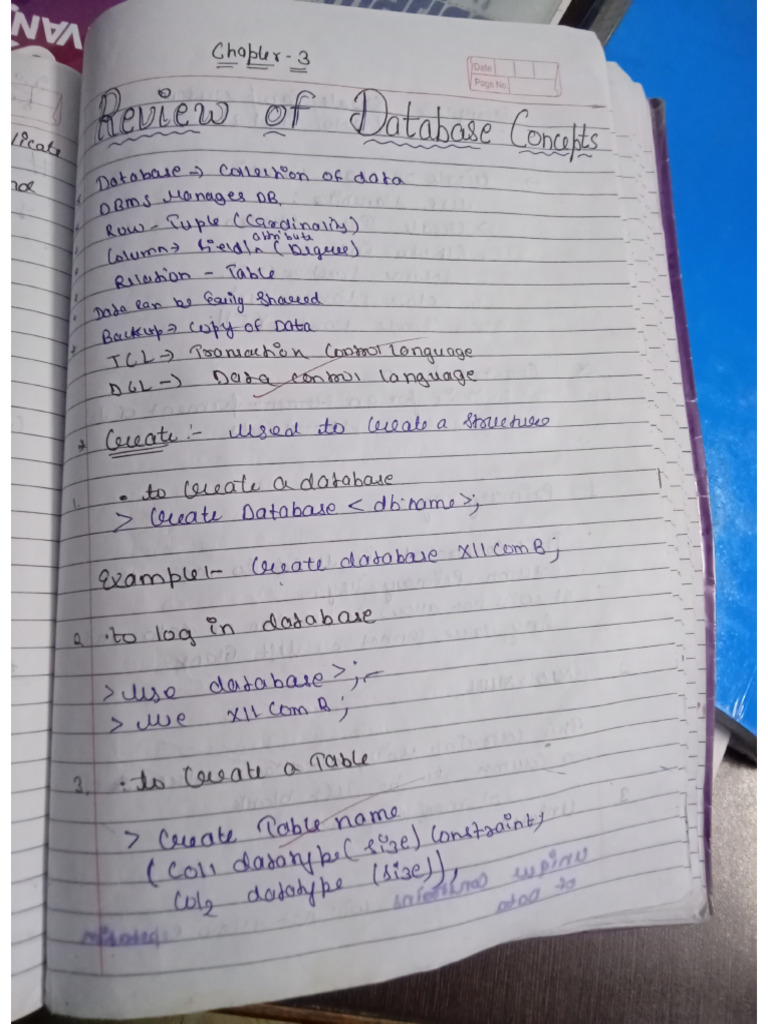 VAN
Chapter - 3
Date
Page No.
Review of Database Concepts
Database → Collection of data
DBMS Manages DB.
Row - Tuple (Cardinality)
Column → field, attribute (Degree)
Relation - Table
Data can be Easily Shared
Backup → Copy of Data
TCL → Transaction Control Language
DCL → Data control language
Create :- Used to Create a Structure
1. • to Create a database
> Create Database < db:name>;
Example:- Create database XII Com B;
2. • to log in database
> Use database>;
> Use XII Com B;
3. : to Create a Table
> Create Table name
(Col1 datatype (size) Constraint,
Col2 datatype (size)),